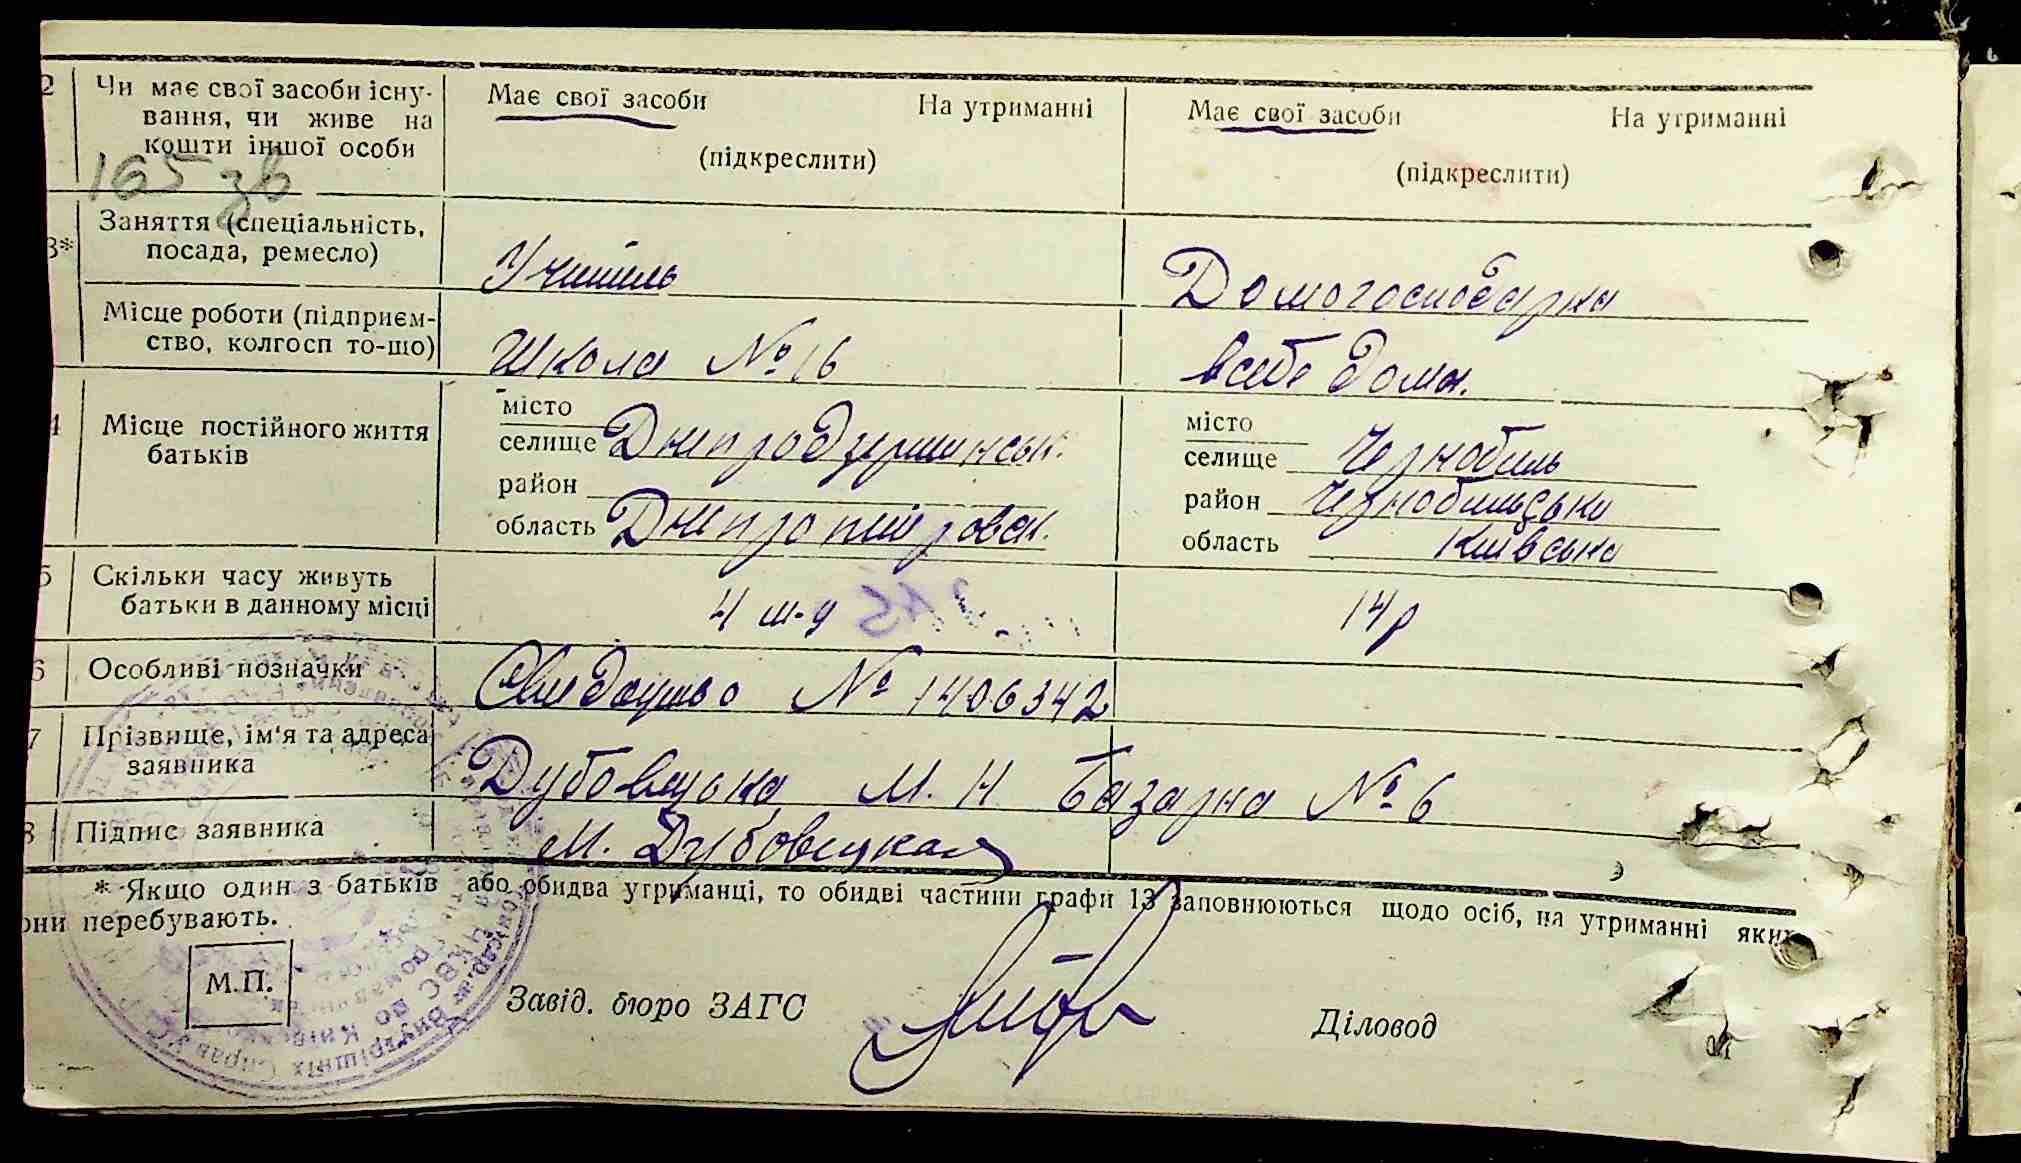 2 Чи має свої засоби існу-
вання, чи живе на
кошти іншої особи
Має свої засоби На утриманні
(підкреслити)
Має свої засоби На утриманні
(підкреслити)
165 зв
3* Заняття (спеціальність,
посада, ремесло)
Учитель
Домогосподарка
Місце роботи (підприєм-
ство, колгосп то-що)
Школа № 16
в себе дома.
4 Місце постійного життя
батьків
місто
селище Дніпродзержинськ.
район
область Дніпропетровськ.
місто
селище Чернобиль
район Чернобильськи
область Київська
5 Скільки часу живуть
батьки в данному місці
4 м-ц
14 р
6 Особливі позначки
Свидоцтво № 1406342
7 Прізвище, ім'я та адреса
заявника
Дубовицька М. Н Базарна № 6
8 Підпис заявника
М. Дубовицкая
* Якщо один з батьків або обидва утриманці, то обидві частини графи 13 заповнюються щодо осіб, на утриманні яких
они перебувають.
М.П.
Завід. бюро ЗАГС
Діловод